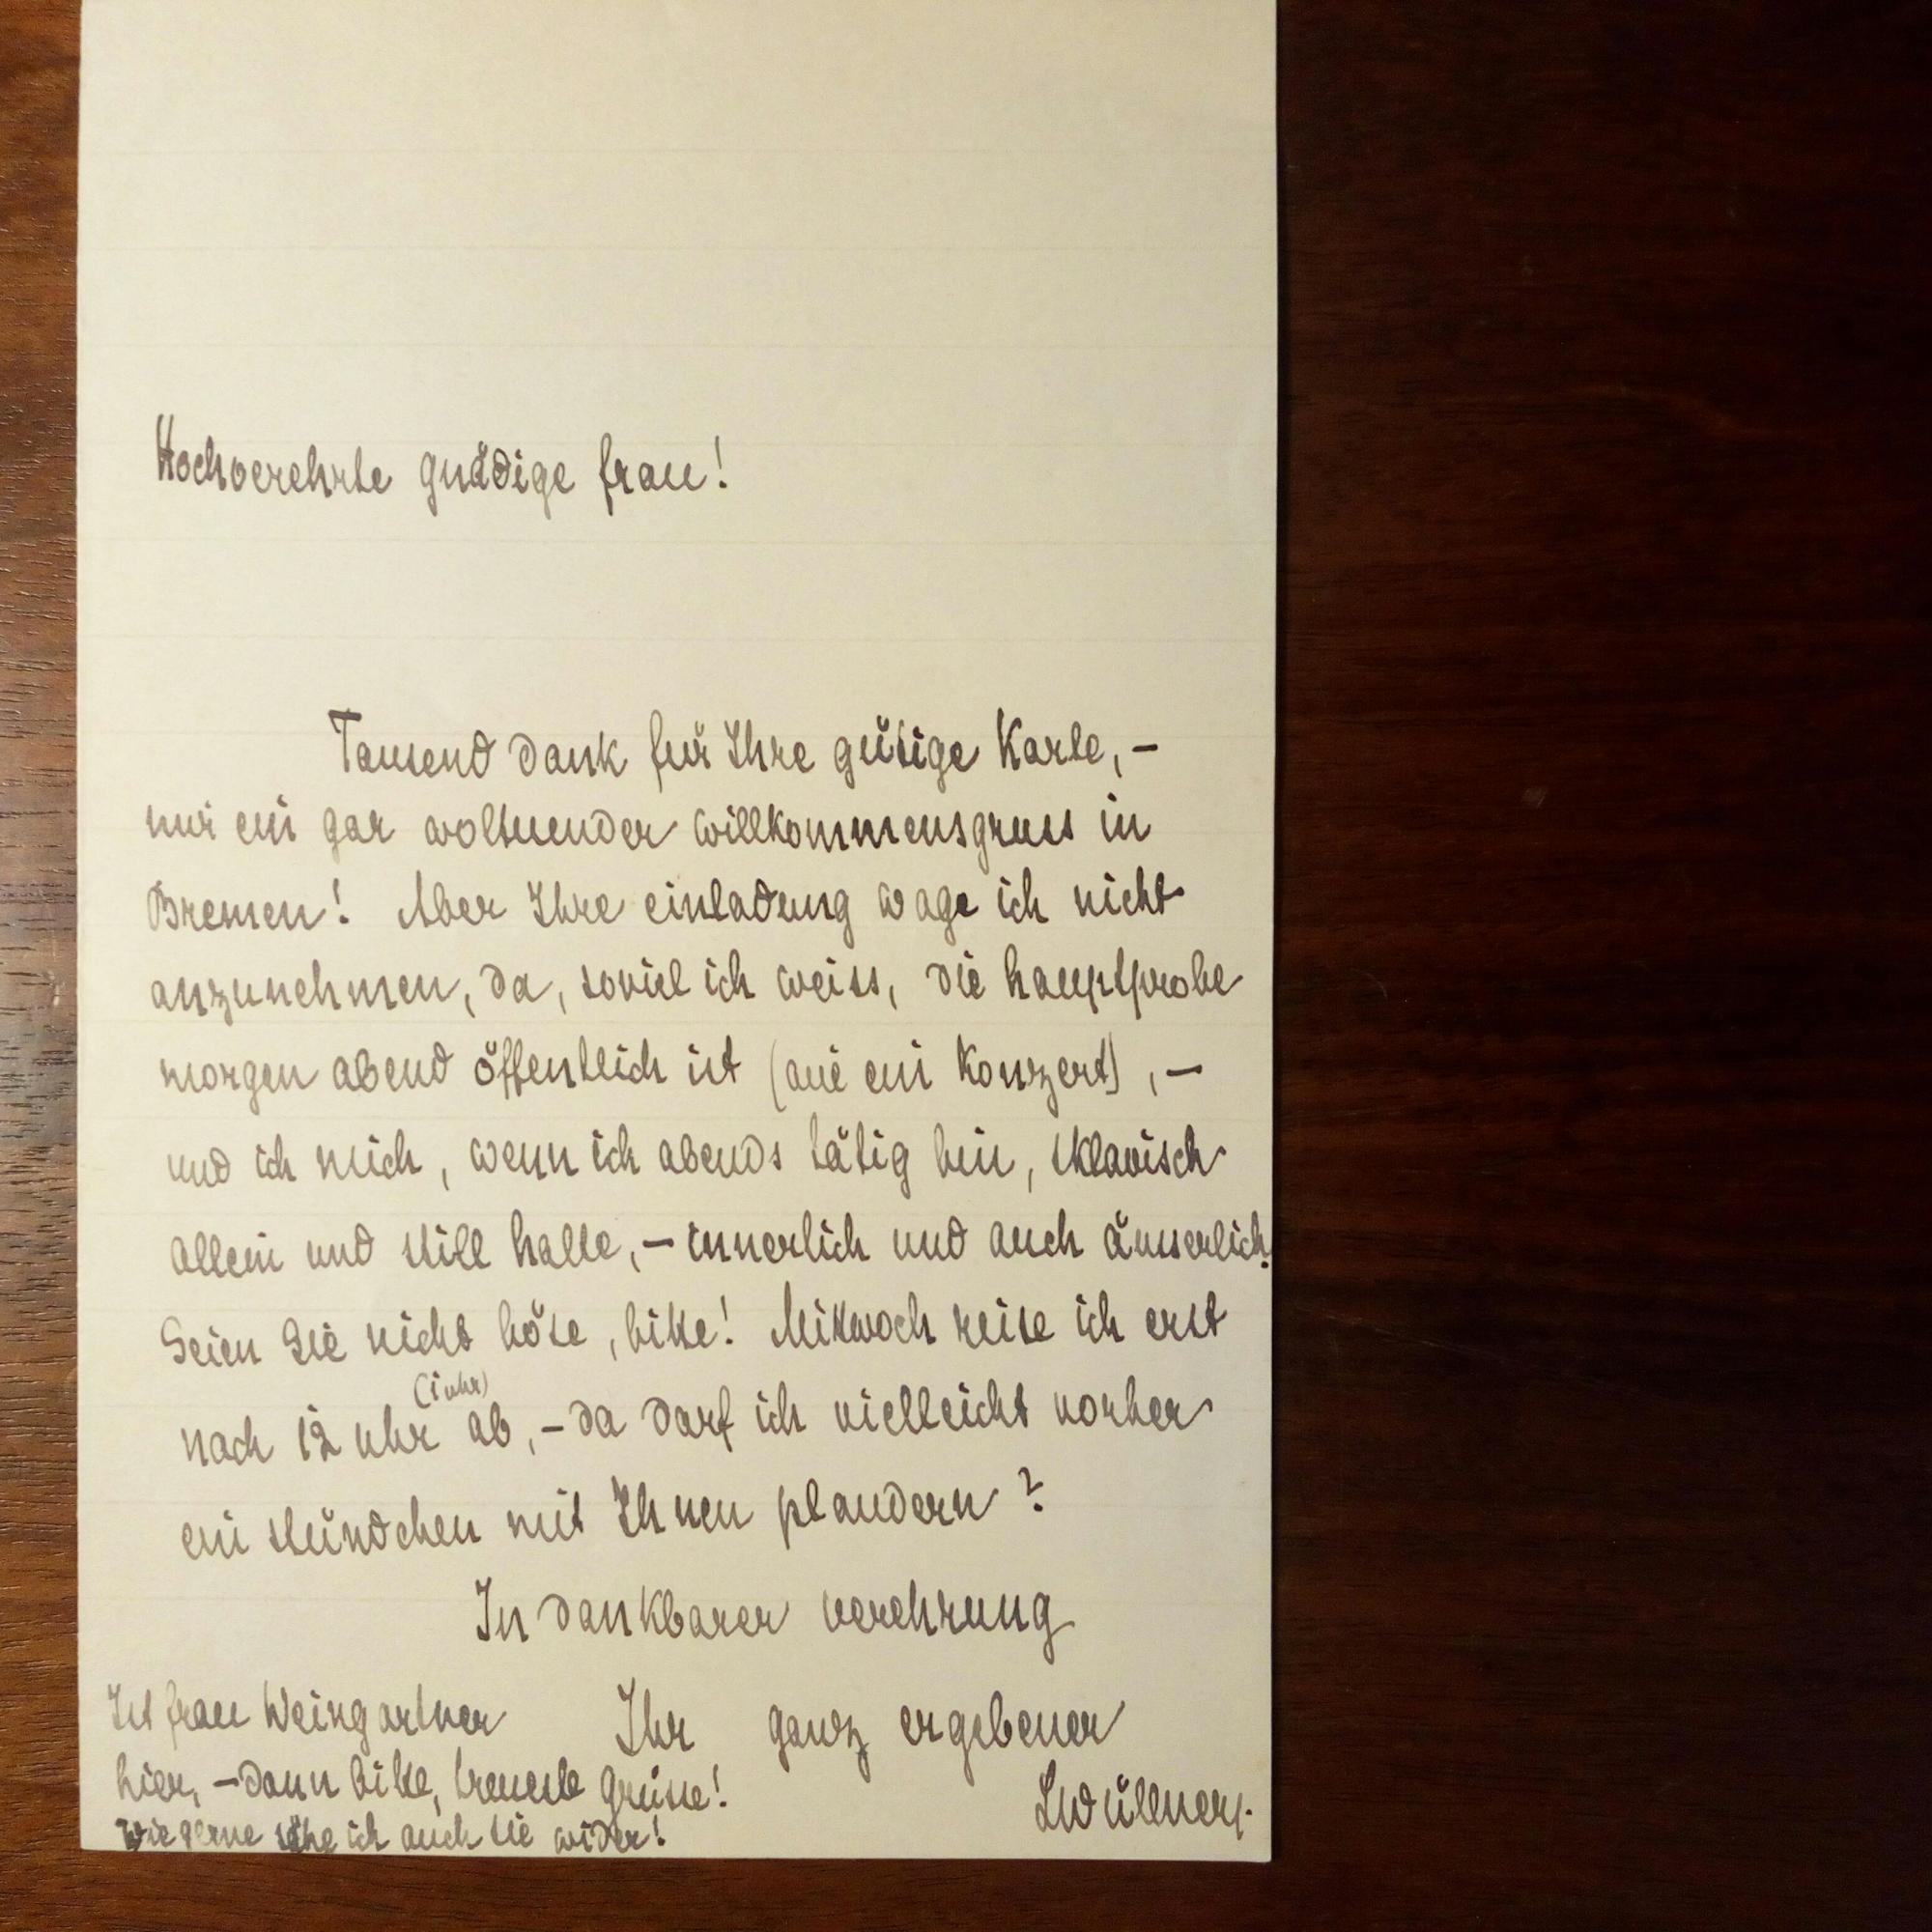 Hochverehrte gnädige frau!
Tausend dank für Ihre gütige Karte, –
mir ein gar woltuender willkommensgruss in
Bremen! Aber Ihre einladung wage ich nicht
anzunehmen, da, soviel ich weiss, die hauptprobe
morgen abend öffentlich ist (wie ein Konzert), –
und ich mich, wenn ich abends tätig bin, sklavisch
allein und still halte, – innerlich und auch äusserlich.
Seien Sie nicht böse, bitte! Mittwoch reise ich erst
(1 uhr)
nach 12 uhr ab, – da darf ich vielleicht vorher
ein stündchen mit Ihnen plaudern?
In dankbarer verehrung
Ihr ganz ergebener
LWüllner.
Ist frau Weingartner
hier, – dann bitte, treueste grüsse!
Wie gerne sähe ich auch sie wider!